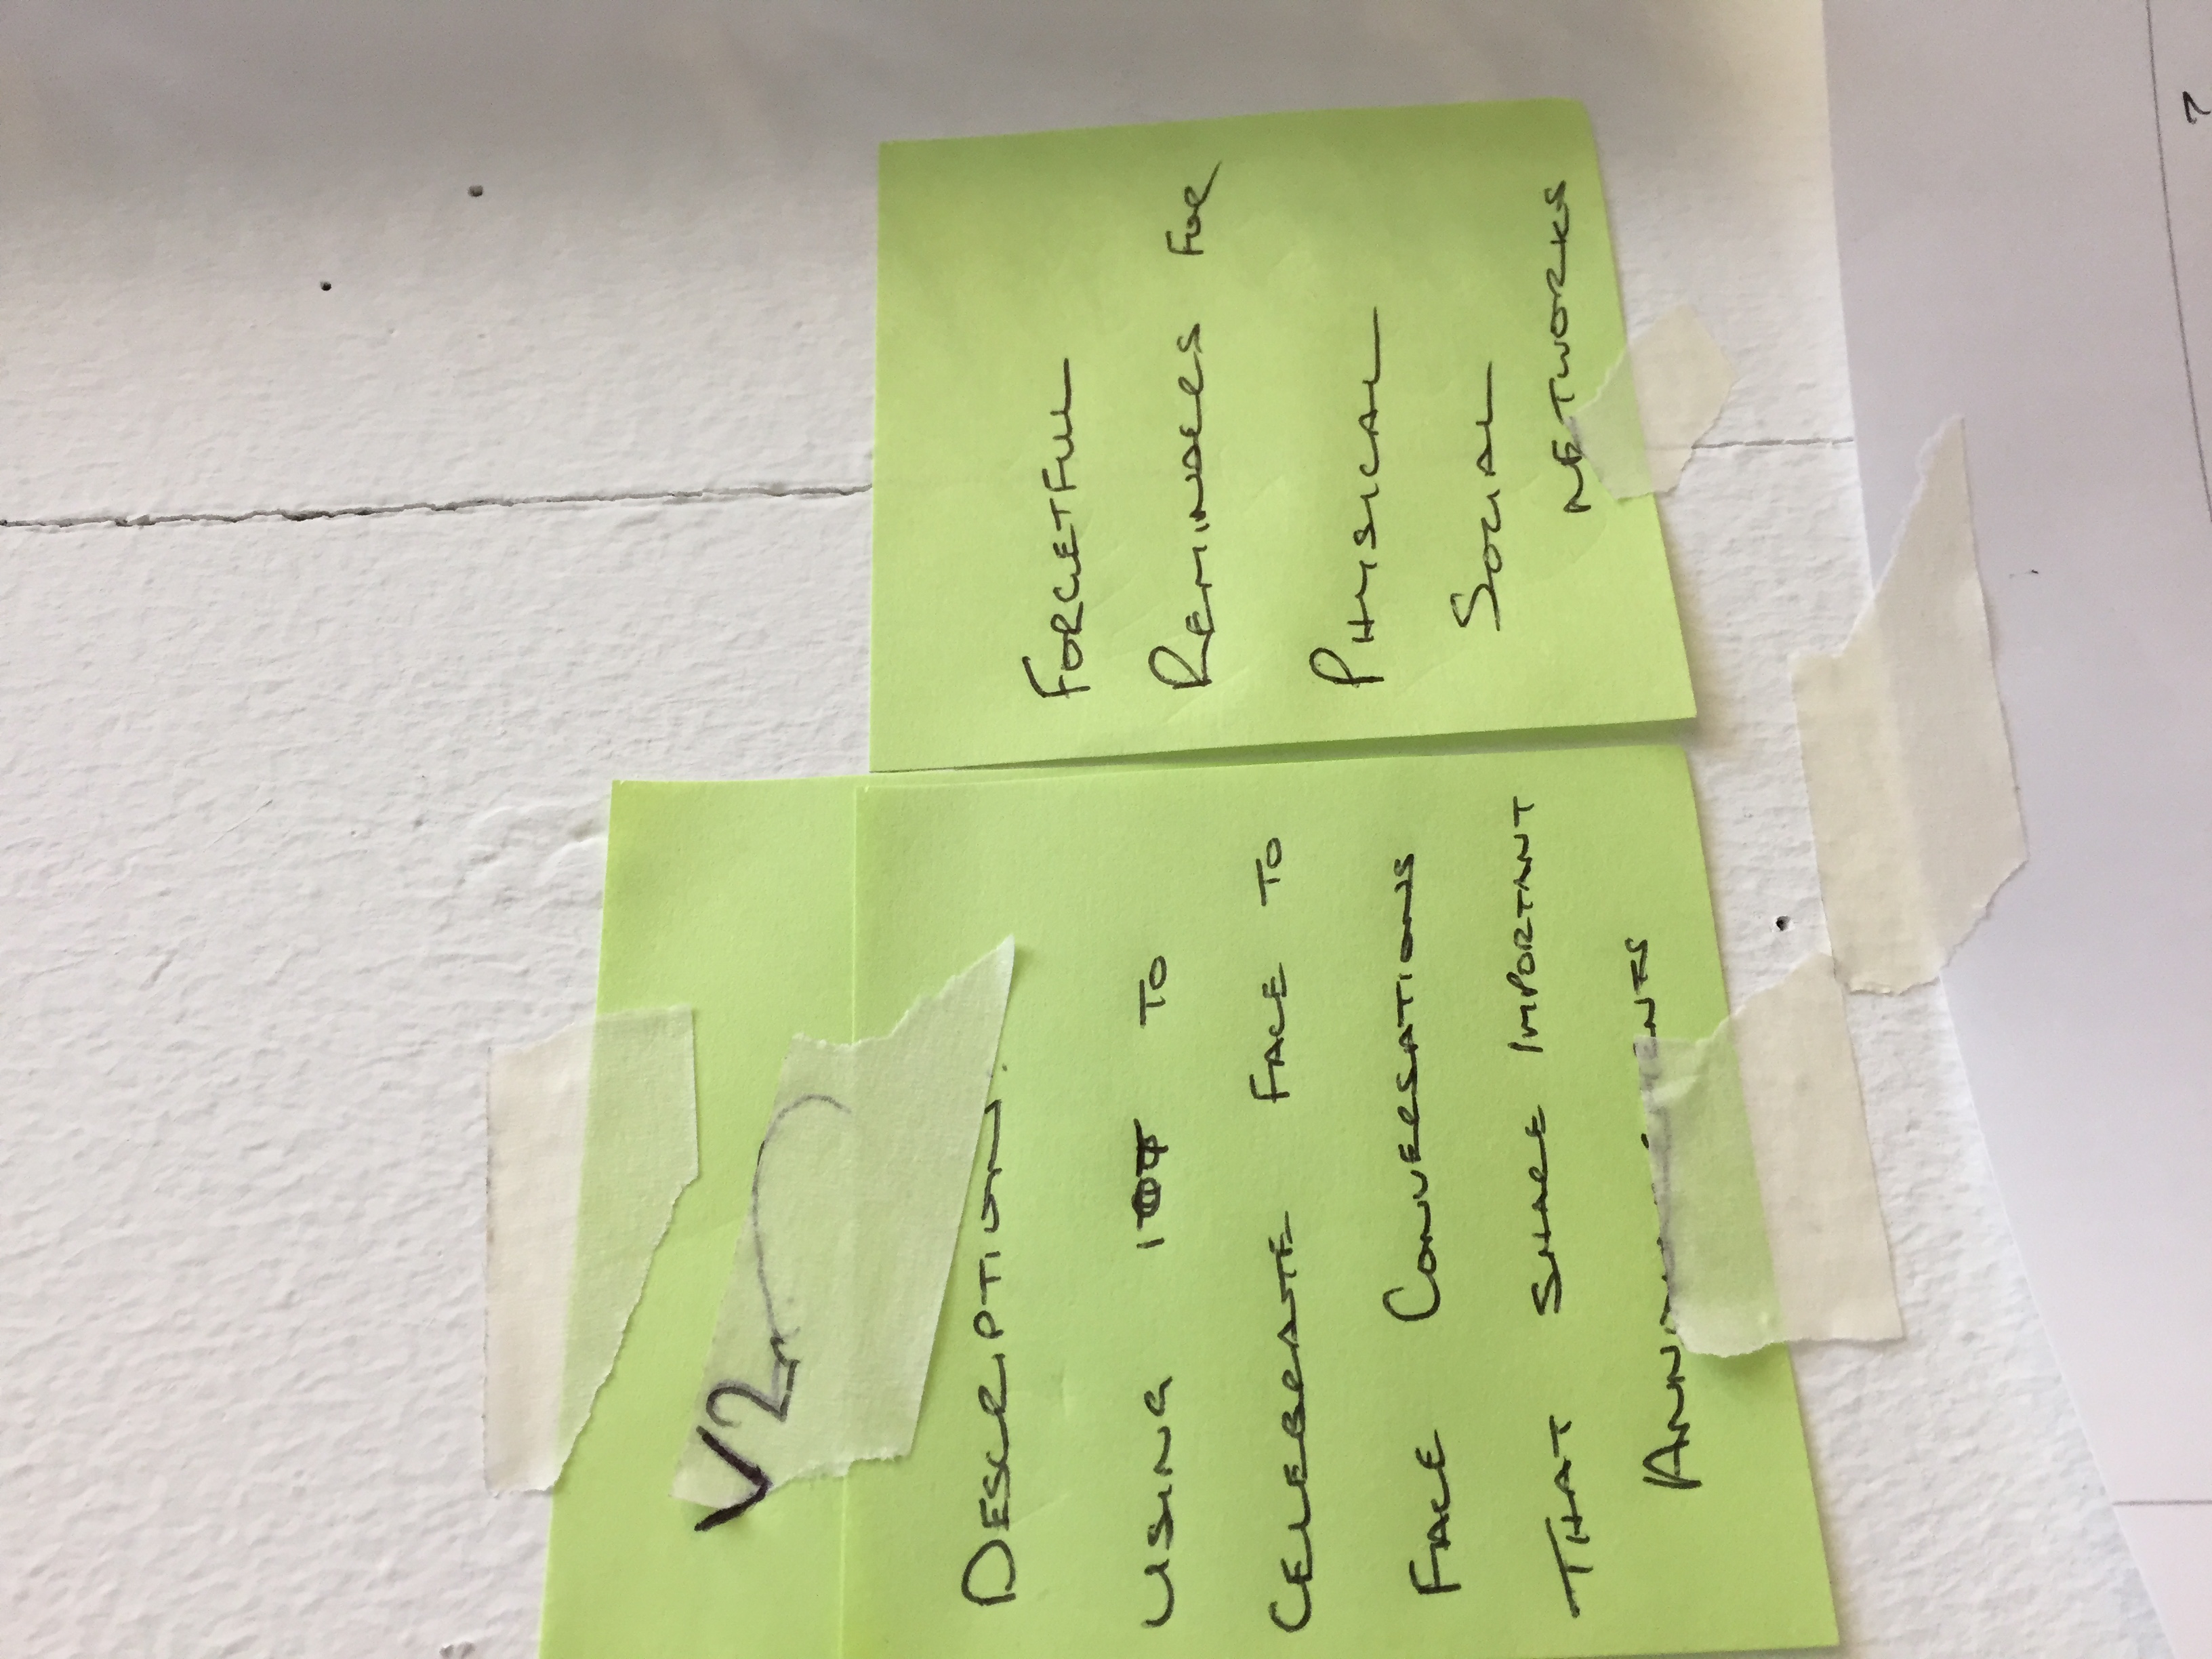 V2
DESCRIPTION:
USING IOT TO
CELEBRATE FACE TO
FACE CONVERSATIONS
THAT SHARE IMPORTANT
ANNOUNCEMENTS
FORGETFUL
REMINDERS FOR
PHYSICAL
SOCIAL
NETWORKS
?